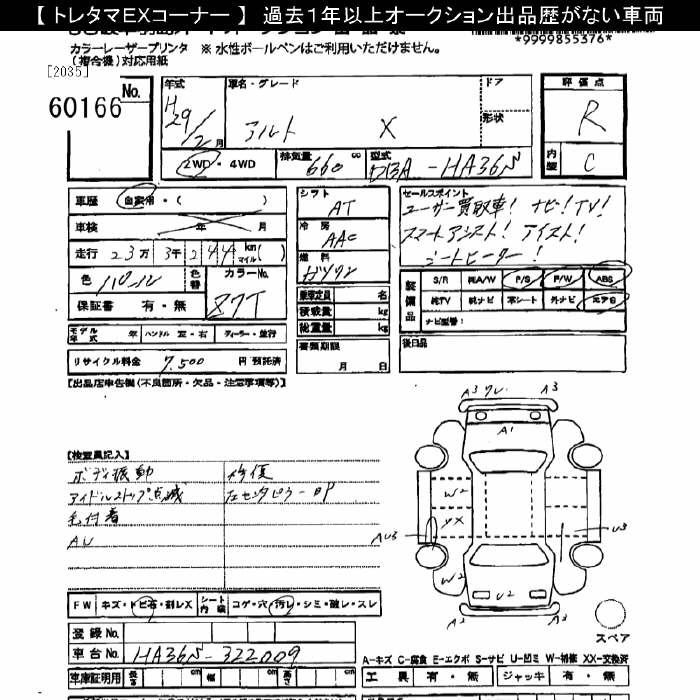 【 トレタマEXコーナー 】 過去1年以上オークション出品歴がない車両
カラーレーザープリンタ ※ 水性ボールペンはご利用いただけません。 *9999855376*
(複合機)対応用紙
[2035]
No. 60166
年式 H29/2月
車名・グレード アルト X
ドア
形状
評価点 R
内装 C
2WD・4WD
排気量 660 cc
型式 DBA-HA36S
車歴 自家用・( )
車検 年 月
走行 23万3千244km(マイル)
色
色替
カラーNo. Z7T
保証書 有・無
シフト AT
冷房 AAC
燃料 ガソリン
乗車定員 名
積載量 kg
総重量 kg
書類期限 月 日
セールスポイント
ユーザー買取車! ナビ!TV!
スマートアシスト! アイスト!
シートヒーター!
装備品 S/R 純A/W P/S P/W ABS
純TV 純ナビ 革シート 外ナビ エアB
ナビ型番:
後日品
モデル年式 年 ハンドル 左・右 ディーラー・並行
リサイクル料金 7,500 円 預託済
【出品店申告欄(不良箇所・欠品・注意事項等)】
【検査員記入】
ボディ振動 修復
アイドルストップ点滅 左センタピラーBP
毛付着
AU
FW キズ・トビ石・割レX シート内張 コゲ・穴・汚レ・シミ・破レ・スレ
登録No.
車台No. HA36S-322009
車庫証明用 長さ cm 幅 cm 高さ cm
A3 ワレ A3
A1
W2
XX
AU3
U3
W2
U2
A2 A2
スペア
A-キズ C-腐食 E-エクボ S-サビ U-凹ミ W-補修 XX-交換済
工具 有・無 ジャッキ 有・無